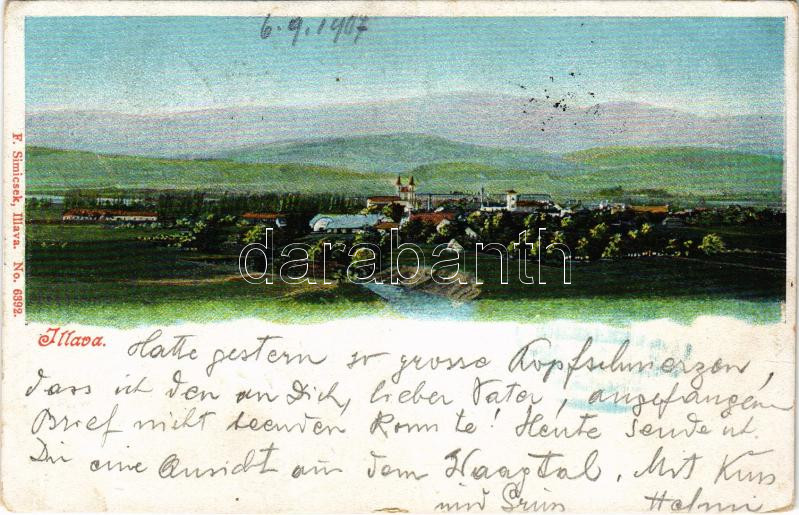 6.9.1907
F. Simicsek, Illava. No. 6392.
darabanth
Illava.
Hatte gestern so grosse Kopfschmerzen,
dass ich den an Dich, lieber Vater, angefangenen
Brief nicht beenden konnte! Heute sende ich
Dir eine Ansicht aus dem Waagtal. Mit Kuss
und Gruss Helmi